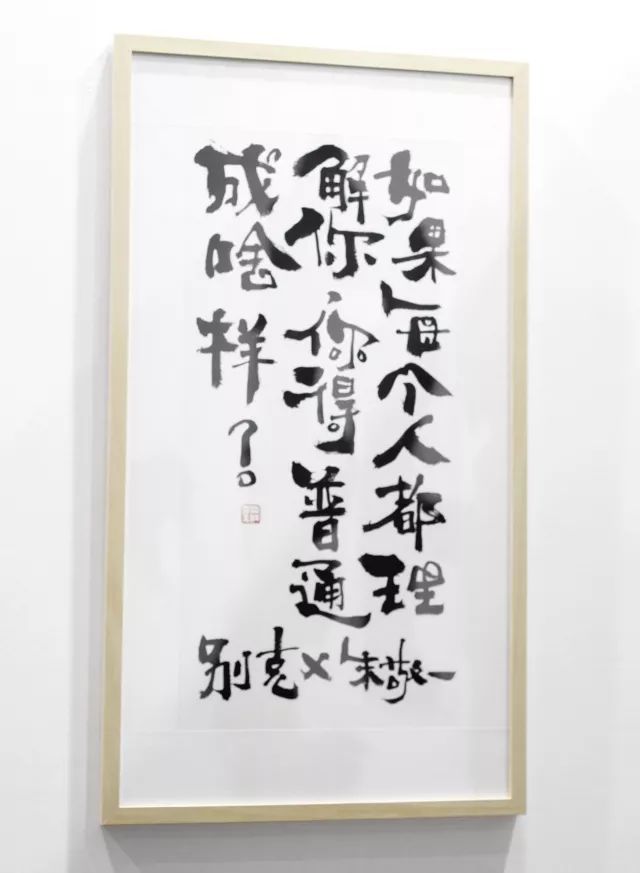 如果每个人都理
解你，你得普通
成啥样？
别克×朱敬一